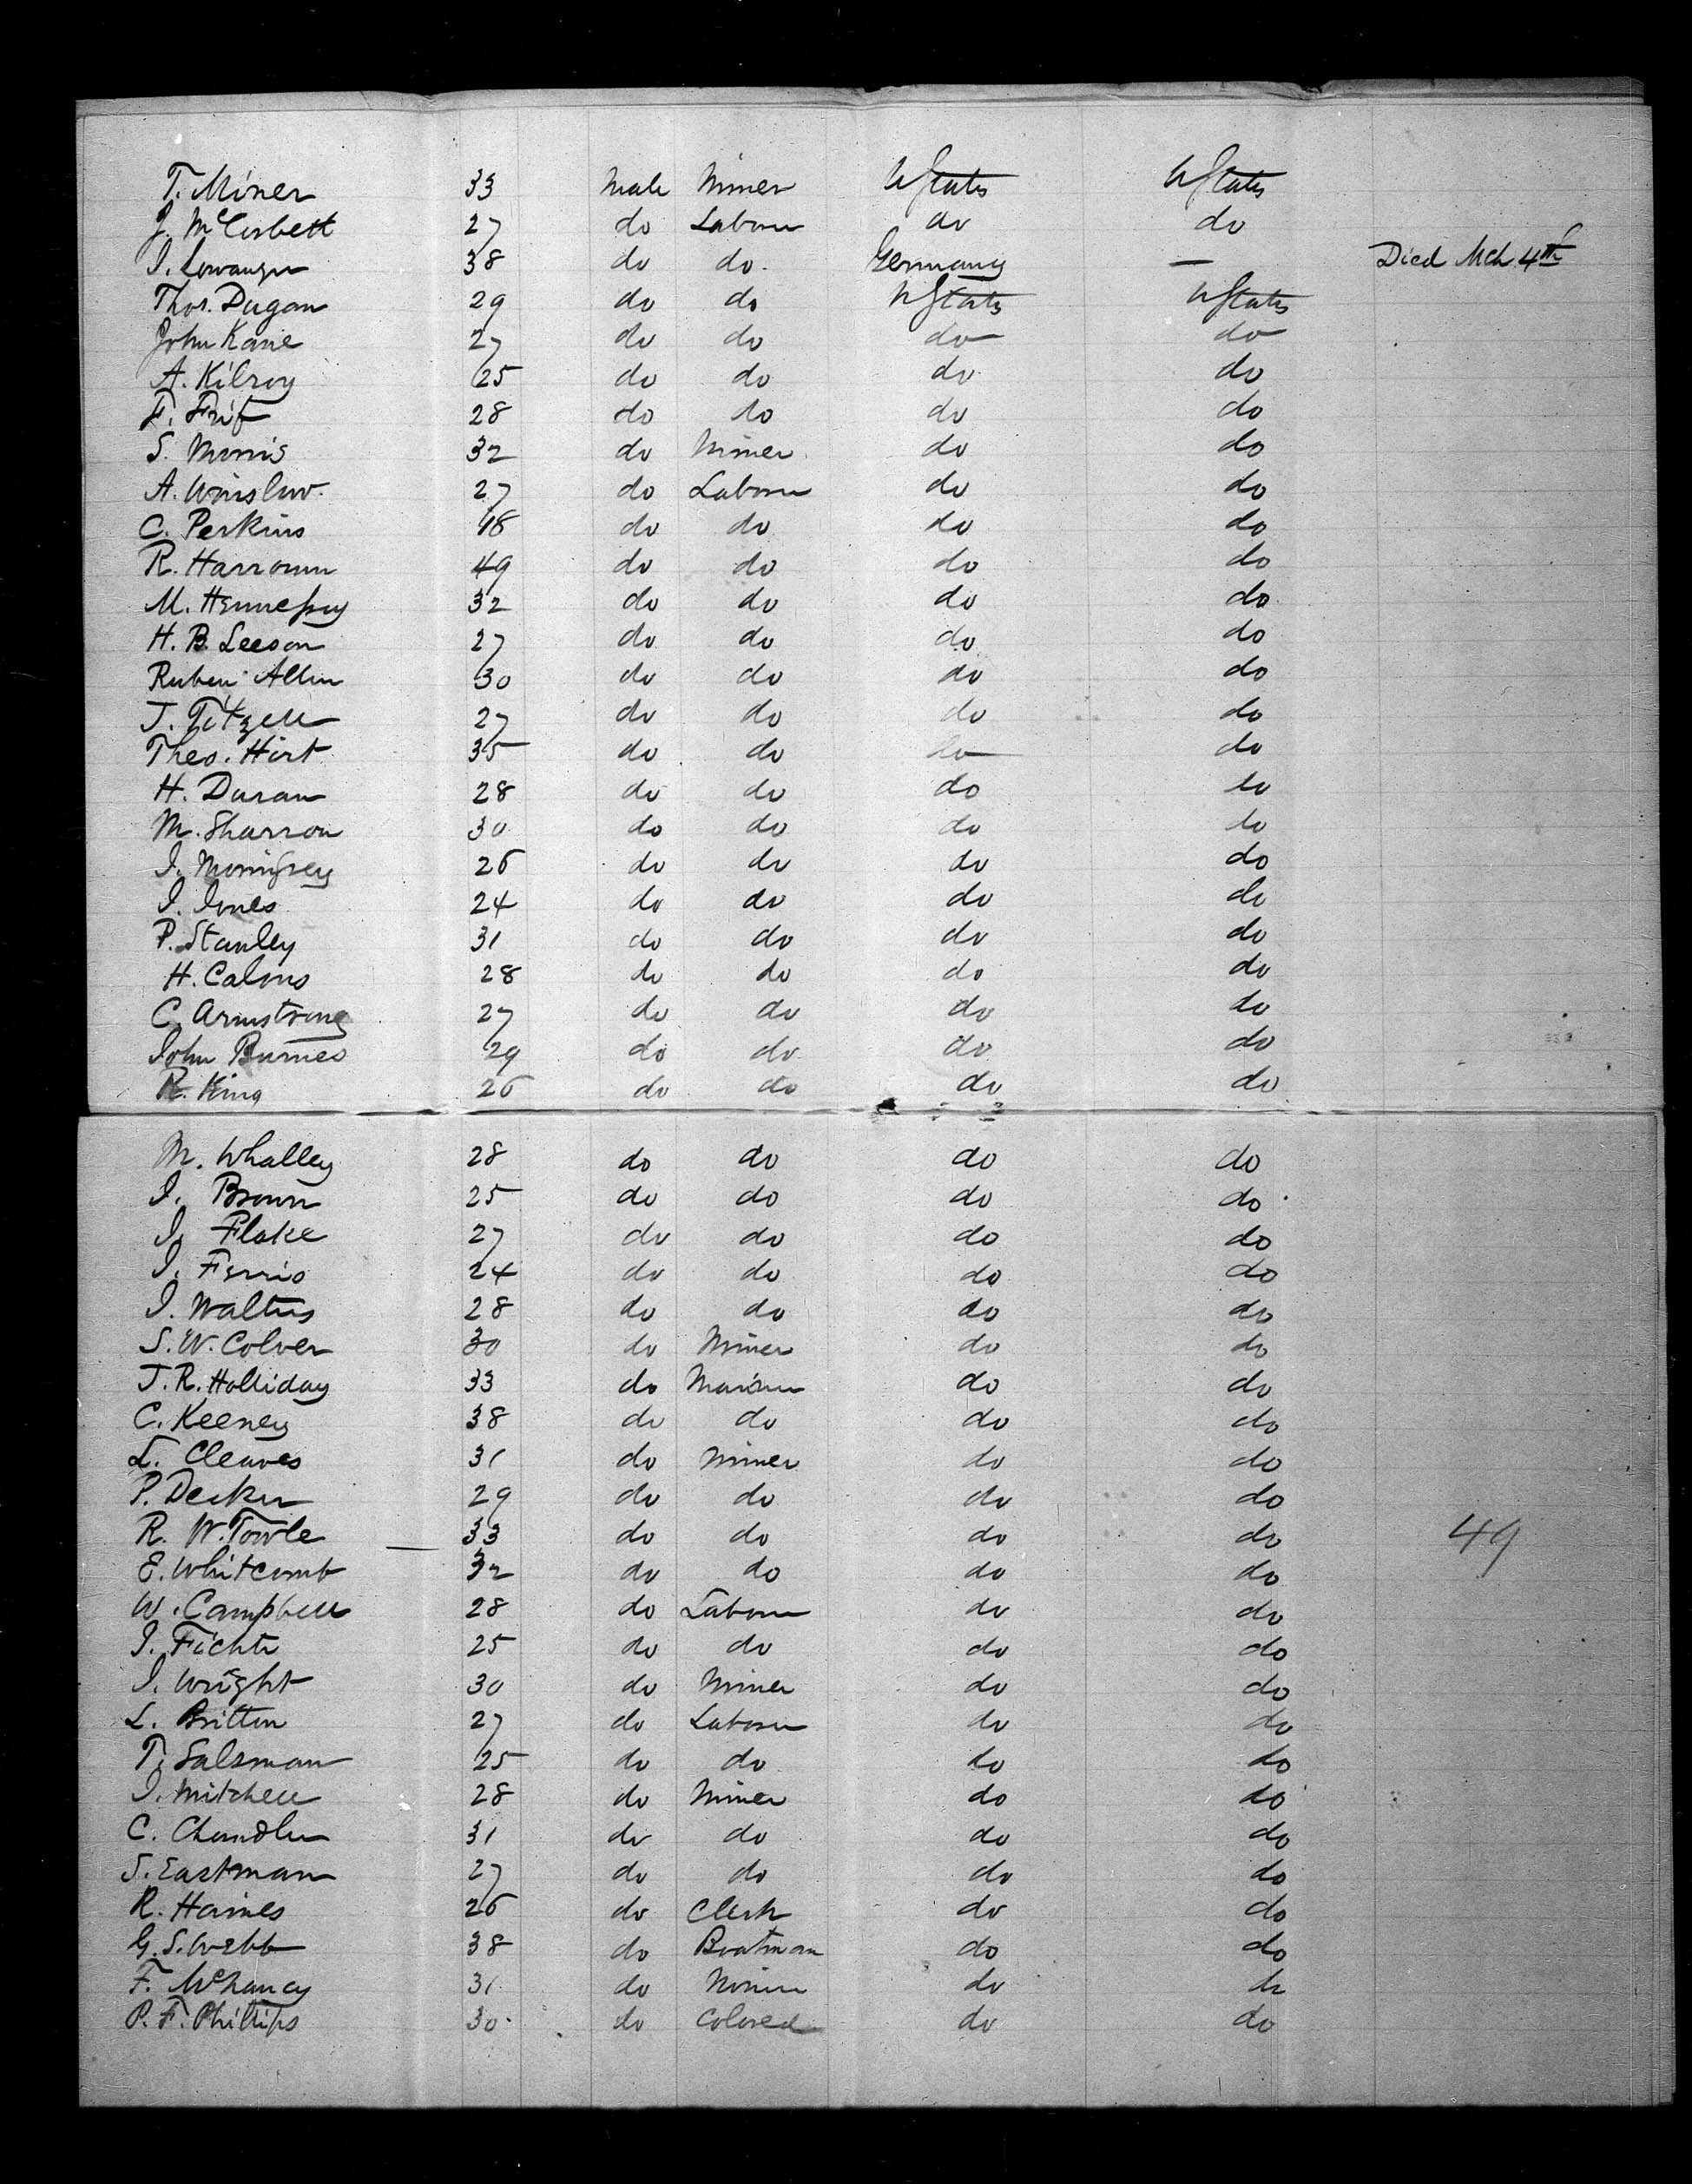 T. Miner 33 Male Miner U States U States
J. McCorbett 27 do Laborer do do
I. Lowanger 38 do do. Germany — Died Mch 4th
Thos. Dugan 29 do do U States U States
John Kane 27 do do do do
A. Kilroy 25 do do do do
F. 28 do do do do
S. Morris 32 do Miner do do
A. Winslow. 27 do Laborer do do
C. Perkins 18 do do do do
R. Harroun 49 do do do do
M. Hennessy 32 do do do do
H. B. Leeson 27 do do do do
Ruben Allen 30 do do do do
J. Titzell 27 do do do do
Theo. Hirt 35 do do do do
H. Duran 28 do do do do
M. Sharron 30 do do do do
I. 26 do do do do
I. Jones 24 do do do do
P. Stanley 31 do do do do
H. Calons 28 do do do do
C. Armstrong 27 do do do do
John Burnes 29 do do do do
R. King 26 do do do do
M. Whalley 28 do do do do
I. Brown 25 do do do do
I. Flake 27 do do do do
I. Ferris 24 do do do do
I. Walters 28 do do do do
S. W. Colver 30 do Miner do do
J. R. Holliday 33 do Mariner do do
C. Keeney 38 do do do do
L. Cleaves 31 do Miner do do
P. Decker 29 do do do do
R. W. Towle — 33 do do do do 49
E. Whitcomb 32 do do do do
W. Campbell 28 do Laborer do do
I. Fichte 25 do do do do
I. Wright 30 do Miner do do
L. Britton 27 do Laborer do do
T. Salsman 25 do do do do
I. Mitchell 28 do Miner do do
C. Chandler 31 do do do do
S. Eastman 27 do do do do
R. Haines 26 do Clerk do do
G. S. Webb 38 do Boatman do do
F. McChancy 31 do Miner do do
P. F. Phillips 30 do Colored do do